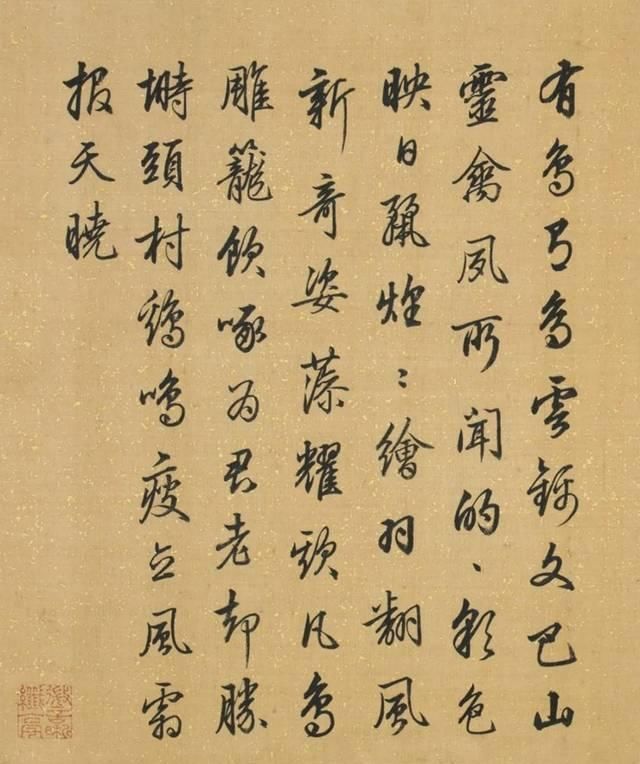 有鳥有鳥雲錦文巴山
靈禽夙所聞的〻彩色
映日飄煌〻繪羽翻風
新奇姿藻耀頫凡鳥
雕籠飲啄為君老却勝
塒頭村鷄鳴瘦立風霜
報天曉